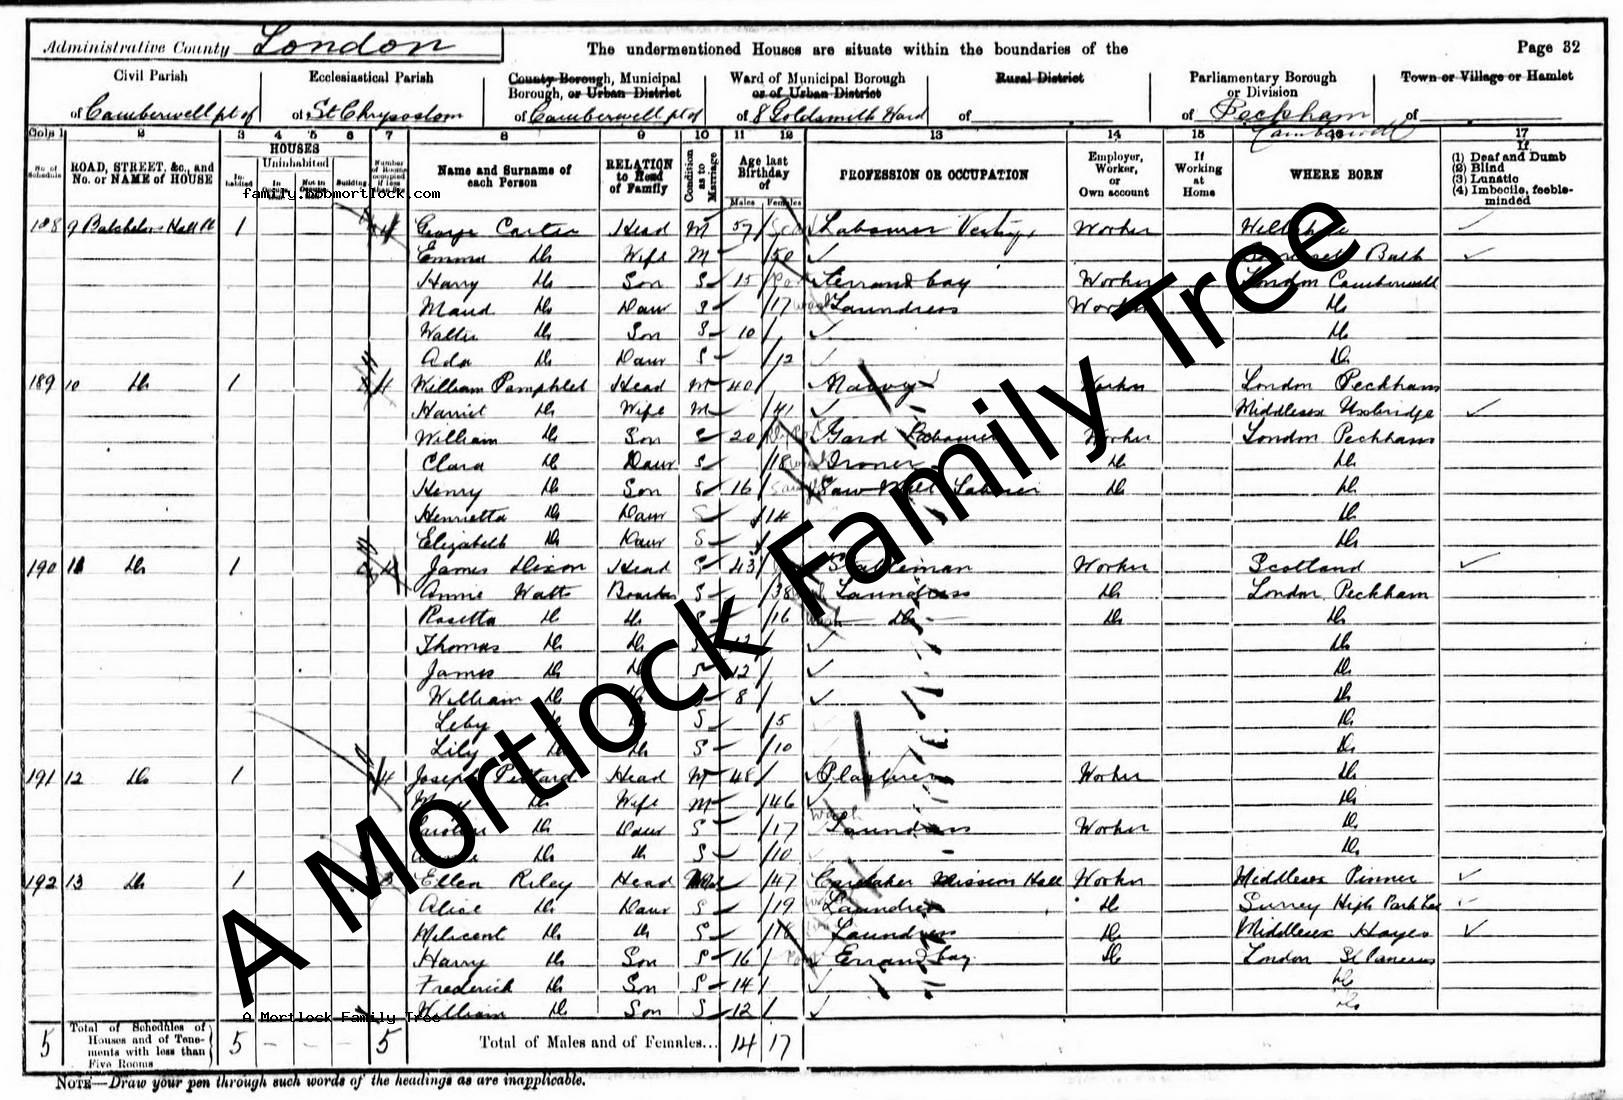 Administrative County London
The undermentioned Houses are situate within the boundaries of the
Page 32
Civil Parish
of Camberwell pt of
Ecclesiastical Parish
of St Chrysostom
County Borough, Municipal
Borough, or Urban District
of Camberwell pt of
Ward of Municipal Borough
or of Urban District
of 8 Goldsmith Ward
Rural District
of
Parliamentary Borough
or Division
of Peckham
Camberwell
Town or Village or Hamlet
of
Cols 1 2 3 4 5 6 7 8 9 10 11 12 13 14 15 16 17
No. of Schedule
ROAD, STREET, &c., and
No. or NAME of HOUSE
HOUSES
Inhabited
Uninhabited
In Occupation
Not in Occupation
Building
Number of Rooms occupied if less than five
Name and Surname of
each Person
RELATION
to Head
of Family
Condition
as to
Marriage
Age last
Birthday
of
Males Females
PROFESSION OR OCCUPATION
Employer,
Worker,
or
Own account
If
Working
at
Home
WHERE BORN
If
(1) Deaf and Dumb
(2) Blind
(3) Lunatic
(4) Imbecile, feeble-
minded
family.bobmortlock.com
188 9 Batchelors Hall Pl 1 4 George Carter Head M 57 Labourer Worker
Emma Do Wife M 50 Bath
Harry Do Son S 15 Errand boy Worker London Camberwell
Maud Do Daur S 17 Laundress Worker Do
Walter Do Son S 10 Do
Ada Do Daur S 12 Do
189 10 Do 1 4 William Pamphlet Head M 40 Navvy Worker London Peckham
Harriet Do Wife M 41 Middlesex Uxbridge
William Do Son S 20 Labourer Worker London Peckham
Clara Do Daur S 18 Ironer Do Do
Henry Do Son S 16 Saw Mill Labourer Do Do
Henrietta Do Daur S 14 Do
Elizabeth Do Daur S Do
190 11 Do 1 4 James Dixon Head S 43 Worker Scotland
Annie Watts Boarder S 38 Laundress Do London Peckham
Rosetta Do Do S 16 Do Do Do
Thomas Do Do S 13 Do
James Do Do S 12 Do
William Do Do S 8 Do
Do Do S 5 Do
Lily Do Do S 10 Do
191 12 Do 1 4 Joseph Head M 48 Plasterer Worker Do
Do Wife M 46 Do
Caroline Do Daur S 17 Laundress Worker Do
Do Do S 10 Do
192 13 Do 1 3 Ellen Riley Head Wid 47 Caretaker Mission Hall Worker Middlesex Pinner
Alice Do Daur S 19 Laundress Do Surrey
Milicent Do Do S 18 Laundress Do Middlesex Hayes
Harry Do Son S 16 Errand boy Do London St Pancras
Frederick Do Son S 14 Do
William Do Son S 12 Do
A Mortlock Family Tree
A Mortlock Family Tree
5 Total of Schedules of
Houses and of Tene-
ments with less than
Five Rooms
5 - - - 5 Total of Males and of Females... 14 17
NOTE—Draw your pen through such words of the headings as are inapplicable.